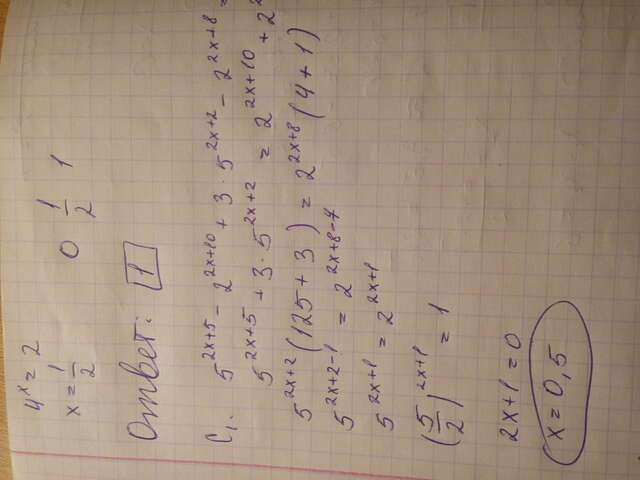 4ˣ = 2
x = 1/2
0 1/2 1
Ответ: 1
C₁. 5^(2x+5) − 2^(2x+10) + 3 · 5^(2x+2) − 2^(2x+8) =
5^(2x+5) + 3 · 5^(2x+2) = 2^(2x+10) + 2
5^(2x+2) (125 + 3) = 2^(2x+8) (4 + 1)
5^(2x+2−1) = 2^(2x+8−7)
5^(2x+1) = 2^(2x+1)
(5/2)^(2x+1) = 1
2x+1 = 0
x = 0,5